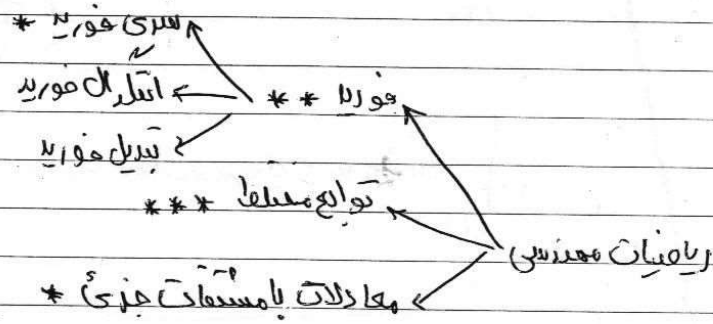 سری فوریه *
انتگرال فوریه
فوریه **
تبدیل فوریه
توابع مختلط ***
ریاضیات مهندسی
معادلات با مشتقات جزئی *